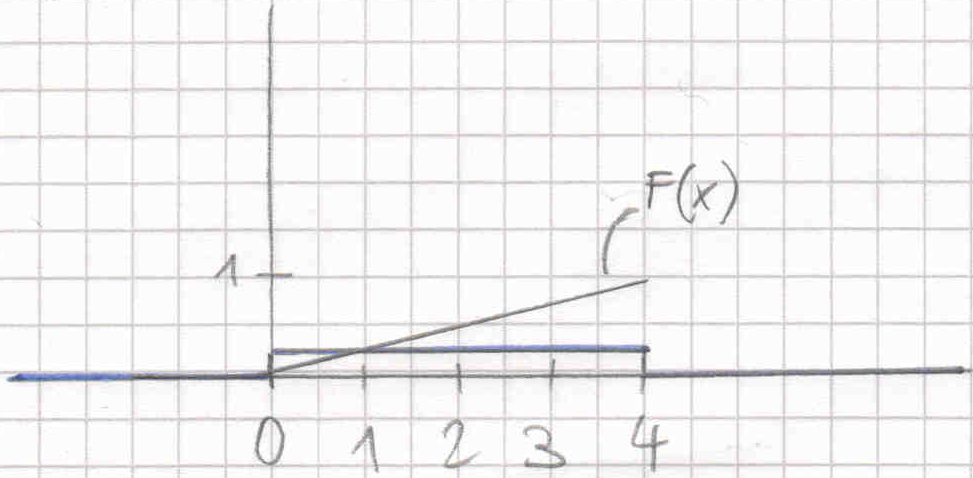 F(x)
1
0 1 2 3 4